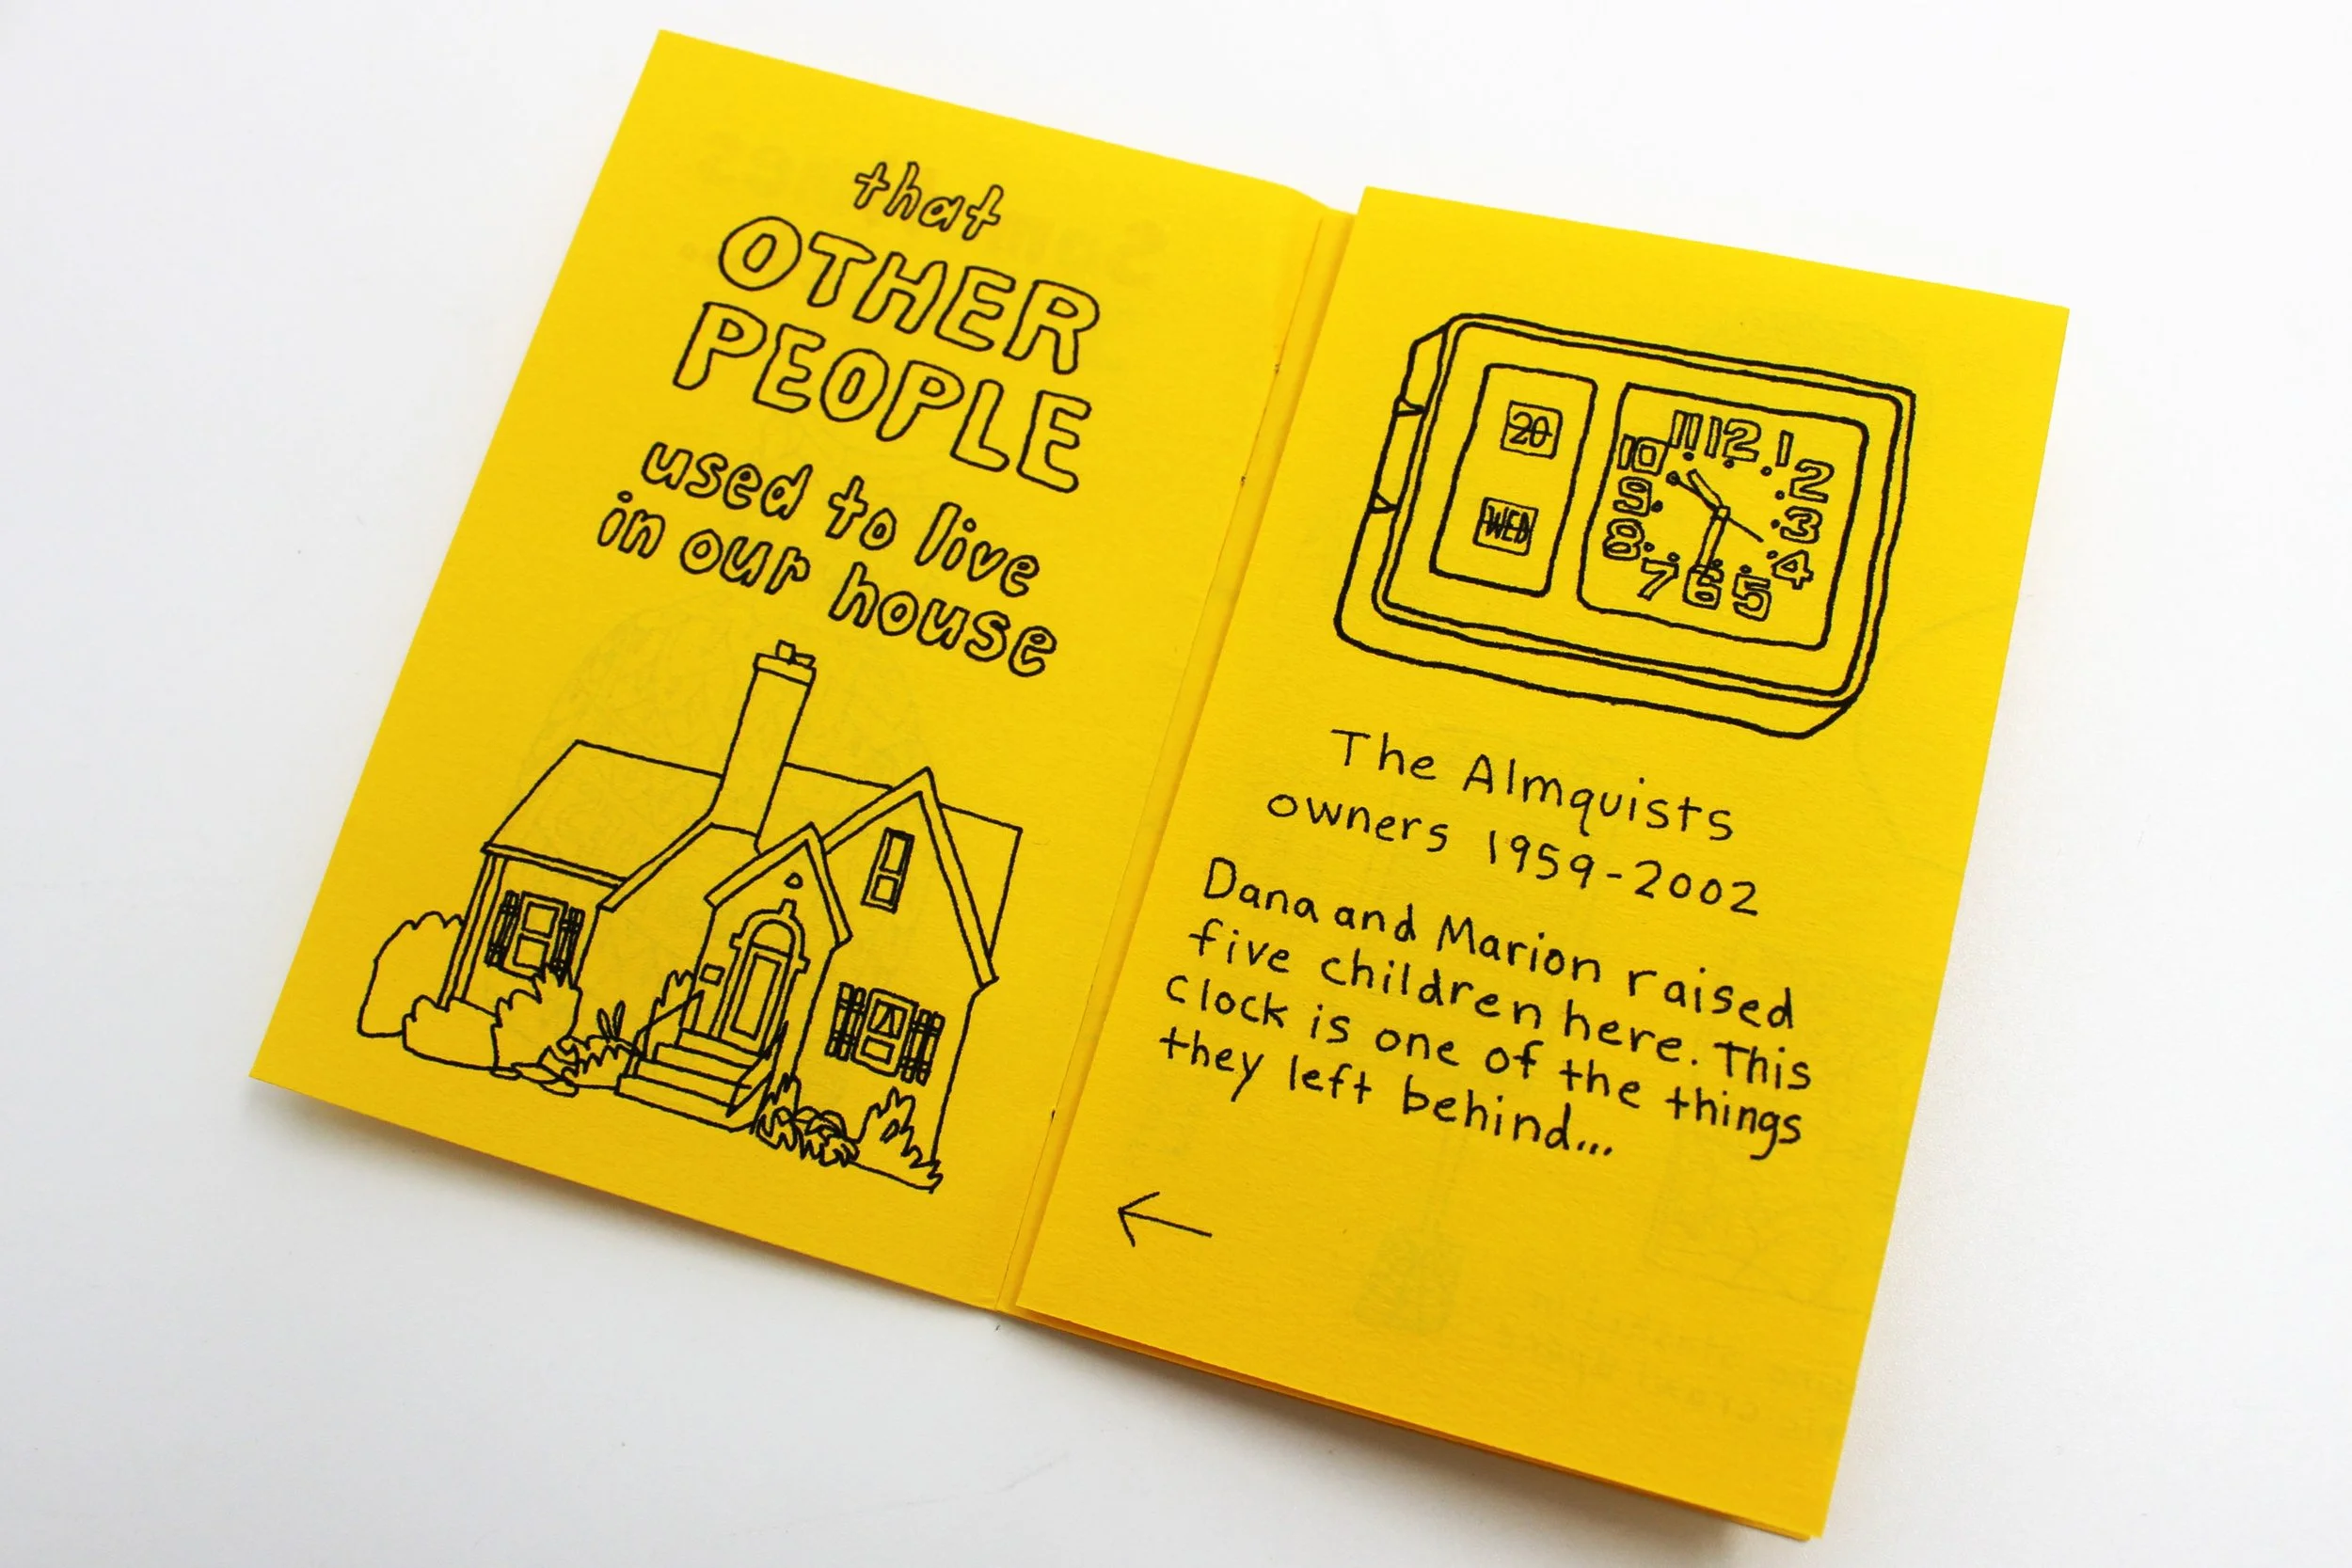 that
OTHER
PEOPLE
used to live
in our house
20
WED
11 12 1
10 2
9 3
8 4
7 6 5
The Almquists
owners 1959-2002
Dana and Marion raised
five children here. This
clock is one of the things
they left behind...